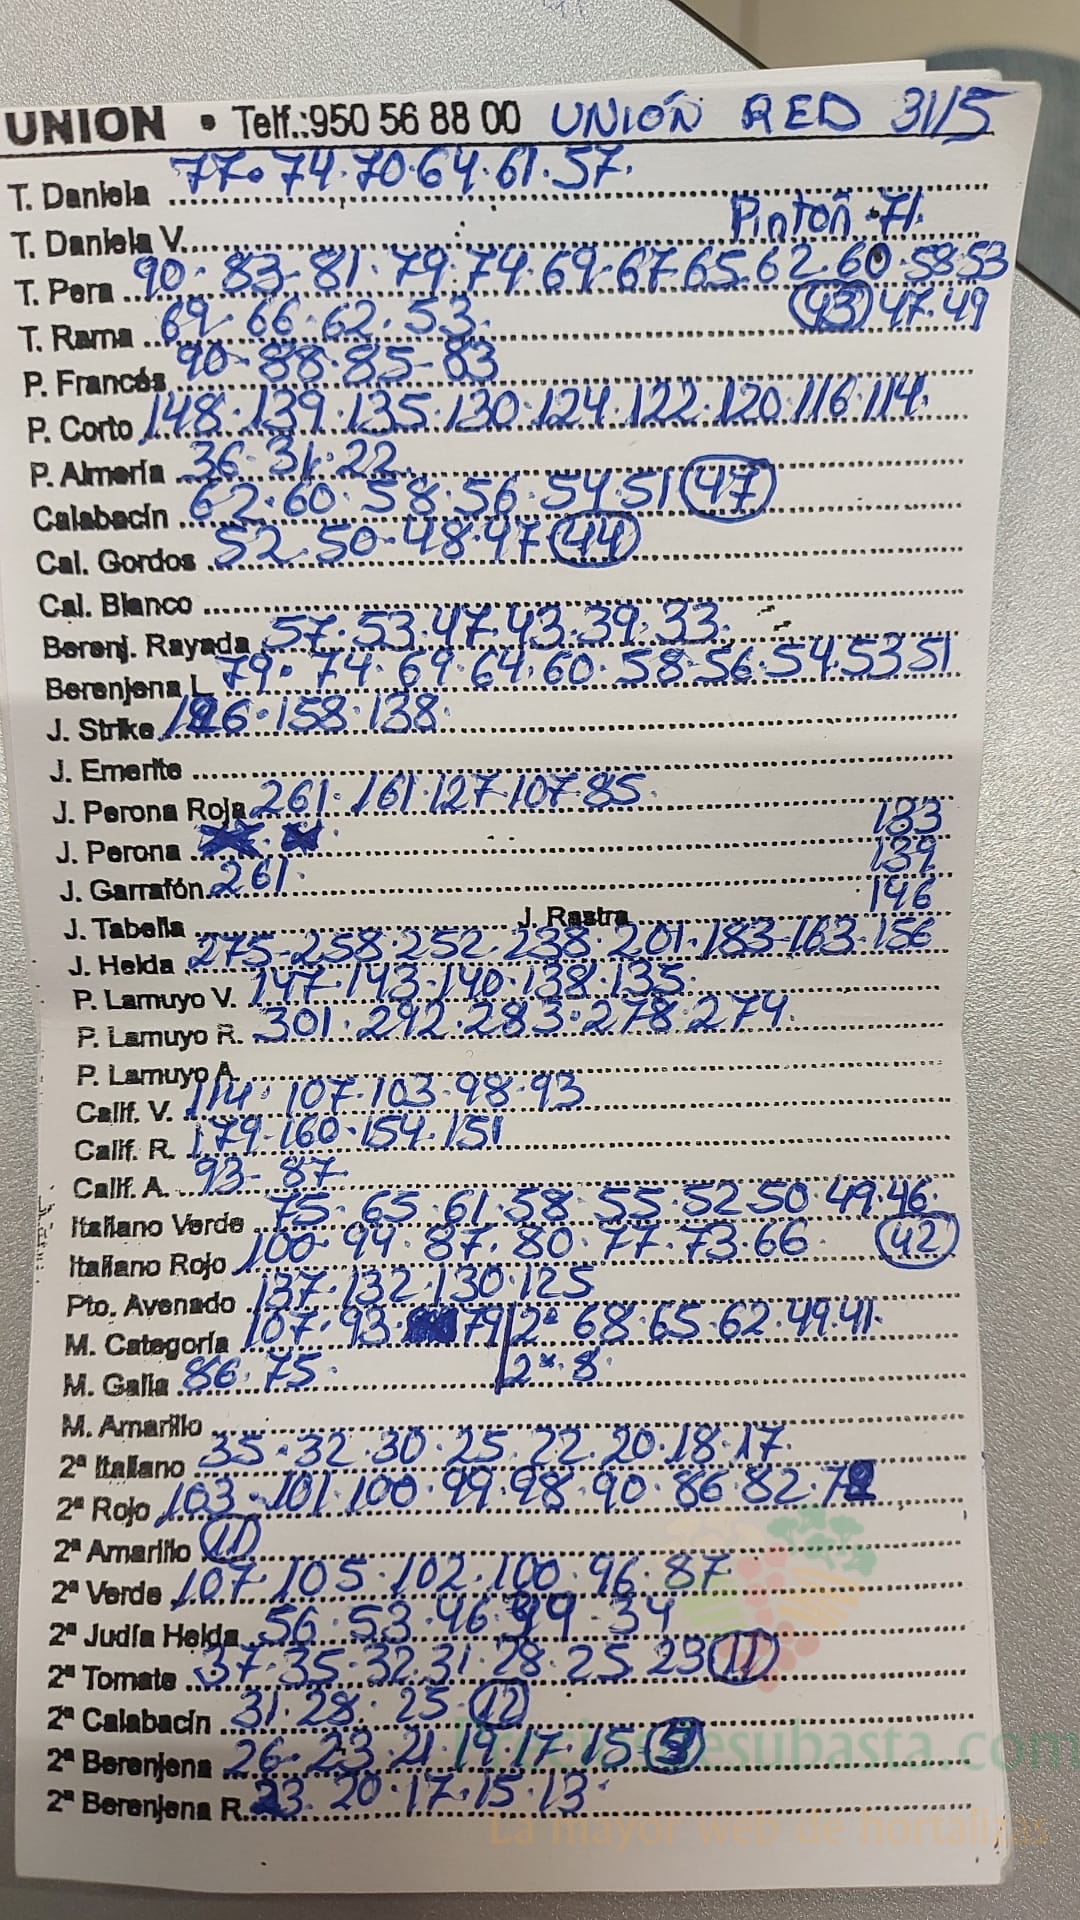 UNION • Telf.:950 56 88 00 UNIÓN RED 31/5
T. Daniela 77. 74. 70. 64. 61. 57.
T. Daniela V. Pintoñ 71.
T. Pera 90. 83- 81. 79. 74. 69. 67. 65. 62. 60. 58. 53
T. Rama 69. 66. 62. 53. (43) 47. 49
P. Francés 90- 88. 85- 83
P. Corto 148. 139. 135. 130. 124. 122. 120. 116. 114.
P. Almería 36. 31. 22.
Calabacín 62. 60. 58. 56. 54. 51 (47)
Cal. Gordos 52. 50- 48. 47 (44)
Cal. Blanco
Berenj. Rayada 57. 53. 47. 43. 39. 33.
Berenjena L 79. 74. 69. 64. 60. 58- 56. 54. 53 51
J. Strike 158. 138.
J. Emerite
J. Perona Roja 261. 161. 127. 107. 85.
J. Perona 183
J. Garrafón 261. 139
J. Tabella J. Rastra 146
J. Helda 275- 258. 252. 238. 201. 183- 163. 156
P. Lamuyo V. 147. 143. 140. 138. 135.
P. Lamuyo R. 301. 292. 283. 278. 274.
P. Lamuyo A.
Calif. V. 114. 107. 103. 98. 93
Calif. R. 179. 160. 154. 151
Calif. A. 93- 87.
Italiano Verde 75. 65. 61. 58. 55. 52. 50. 49. 46.
Italiano Rojo 100. 94. 87. 80. 77. 73. 66. (42)
Pto. Avenado 137. 132. 130. 125
M. Categoría 107. 93. 79 | 2ª 68. 65. 62. 49. 41.
M. Galia 86. 75. | 2ª. 8.
M. Amarillo
2ª Italiano 35. 32. 30. 25. 22. 20. 18. 17.
2ª Rojo 103. 101. 100. 99. 98. 90. 86. 82.
2ª Amarillo (11)
2ª Verde 107. 105. 102. 100. 96. 87
2ª Judía Helda 56. 53. 46. 34
2ª Tomate 37. 35. 32. 31. 28. 25. 23 (11)
2ª Calabacín 31. 28. 25. (12)
2ª Berenjena 26. 23. 21. 19. 17. 15
2ª Berenjena R. 23. 20. 17. 15. 13.
Preciosdesubasta.com
La mayor web de hortalizas